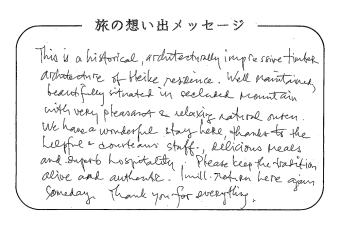 旅の想い出メッセージ
This is a historical, architecturally impressive timber
architecture of Heike residence. Well maintained,
beautifully situated in secluded mountain
with very pleasant & relaxing natural onsen.
We have a wonderful stay here, thanks to the
helpful & courteous staff, delicious meals
and superb hospitality. Please keep the tradition
alive and authentic. I will return here again
someday. Thank you for everything.